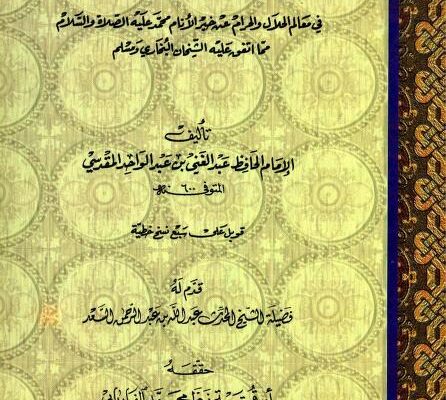 في معالم الحلال والحرام عن خير الأنام محمد عليه الصلاة والسلام
مما اتفق عليه الشيخان البخاري ومسلم
تأليف
الإمام الحافظ عبد الغني بن عبد الواحد المقدسي
المتوفى ٦٠٠ هـ
قوبل على سبع نسخ خطية
قدم له
فضيلة الشيخ المحدث عبد الله بن عبد الرحمن السعد
حققه